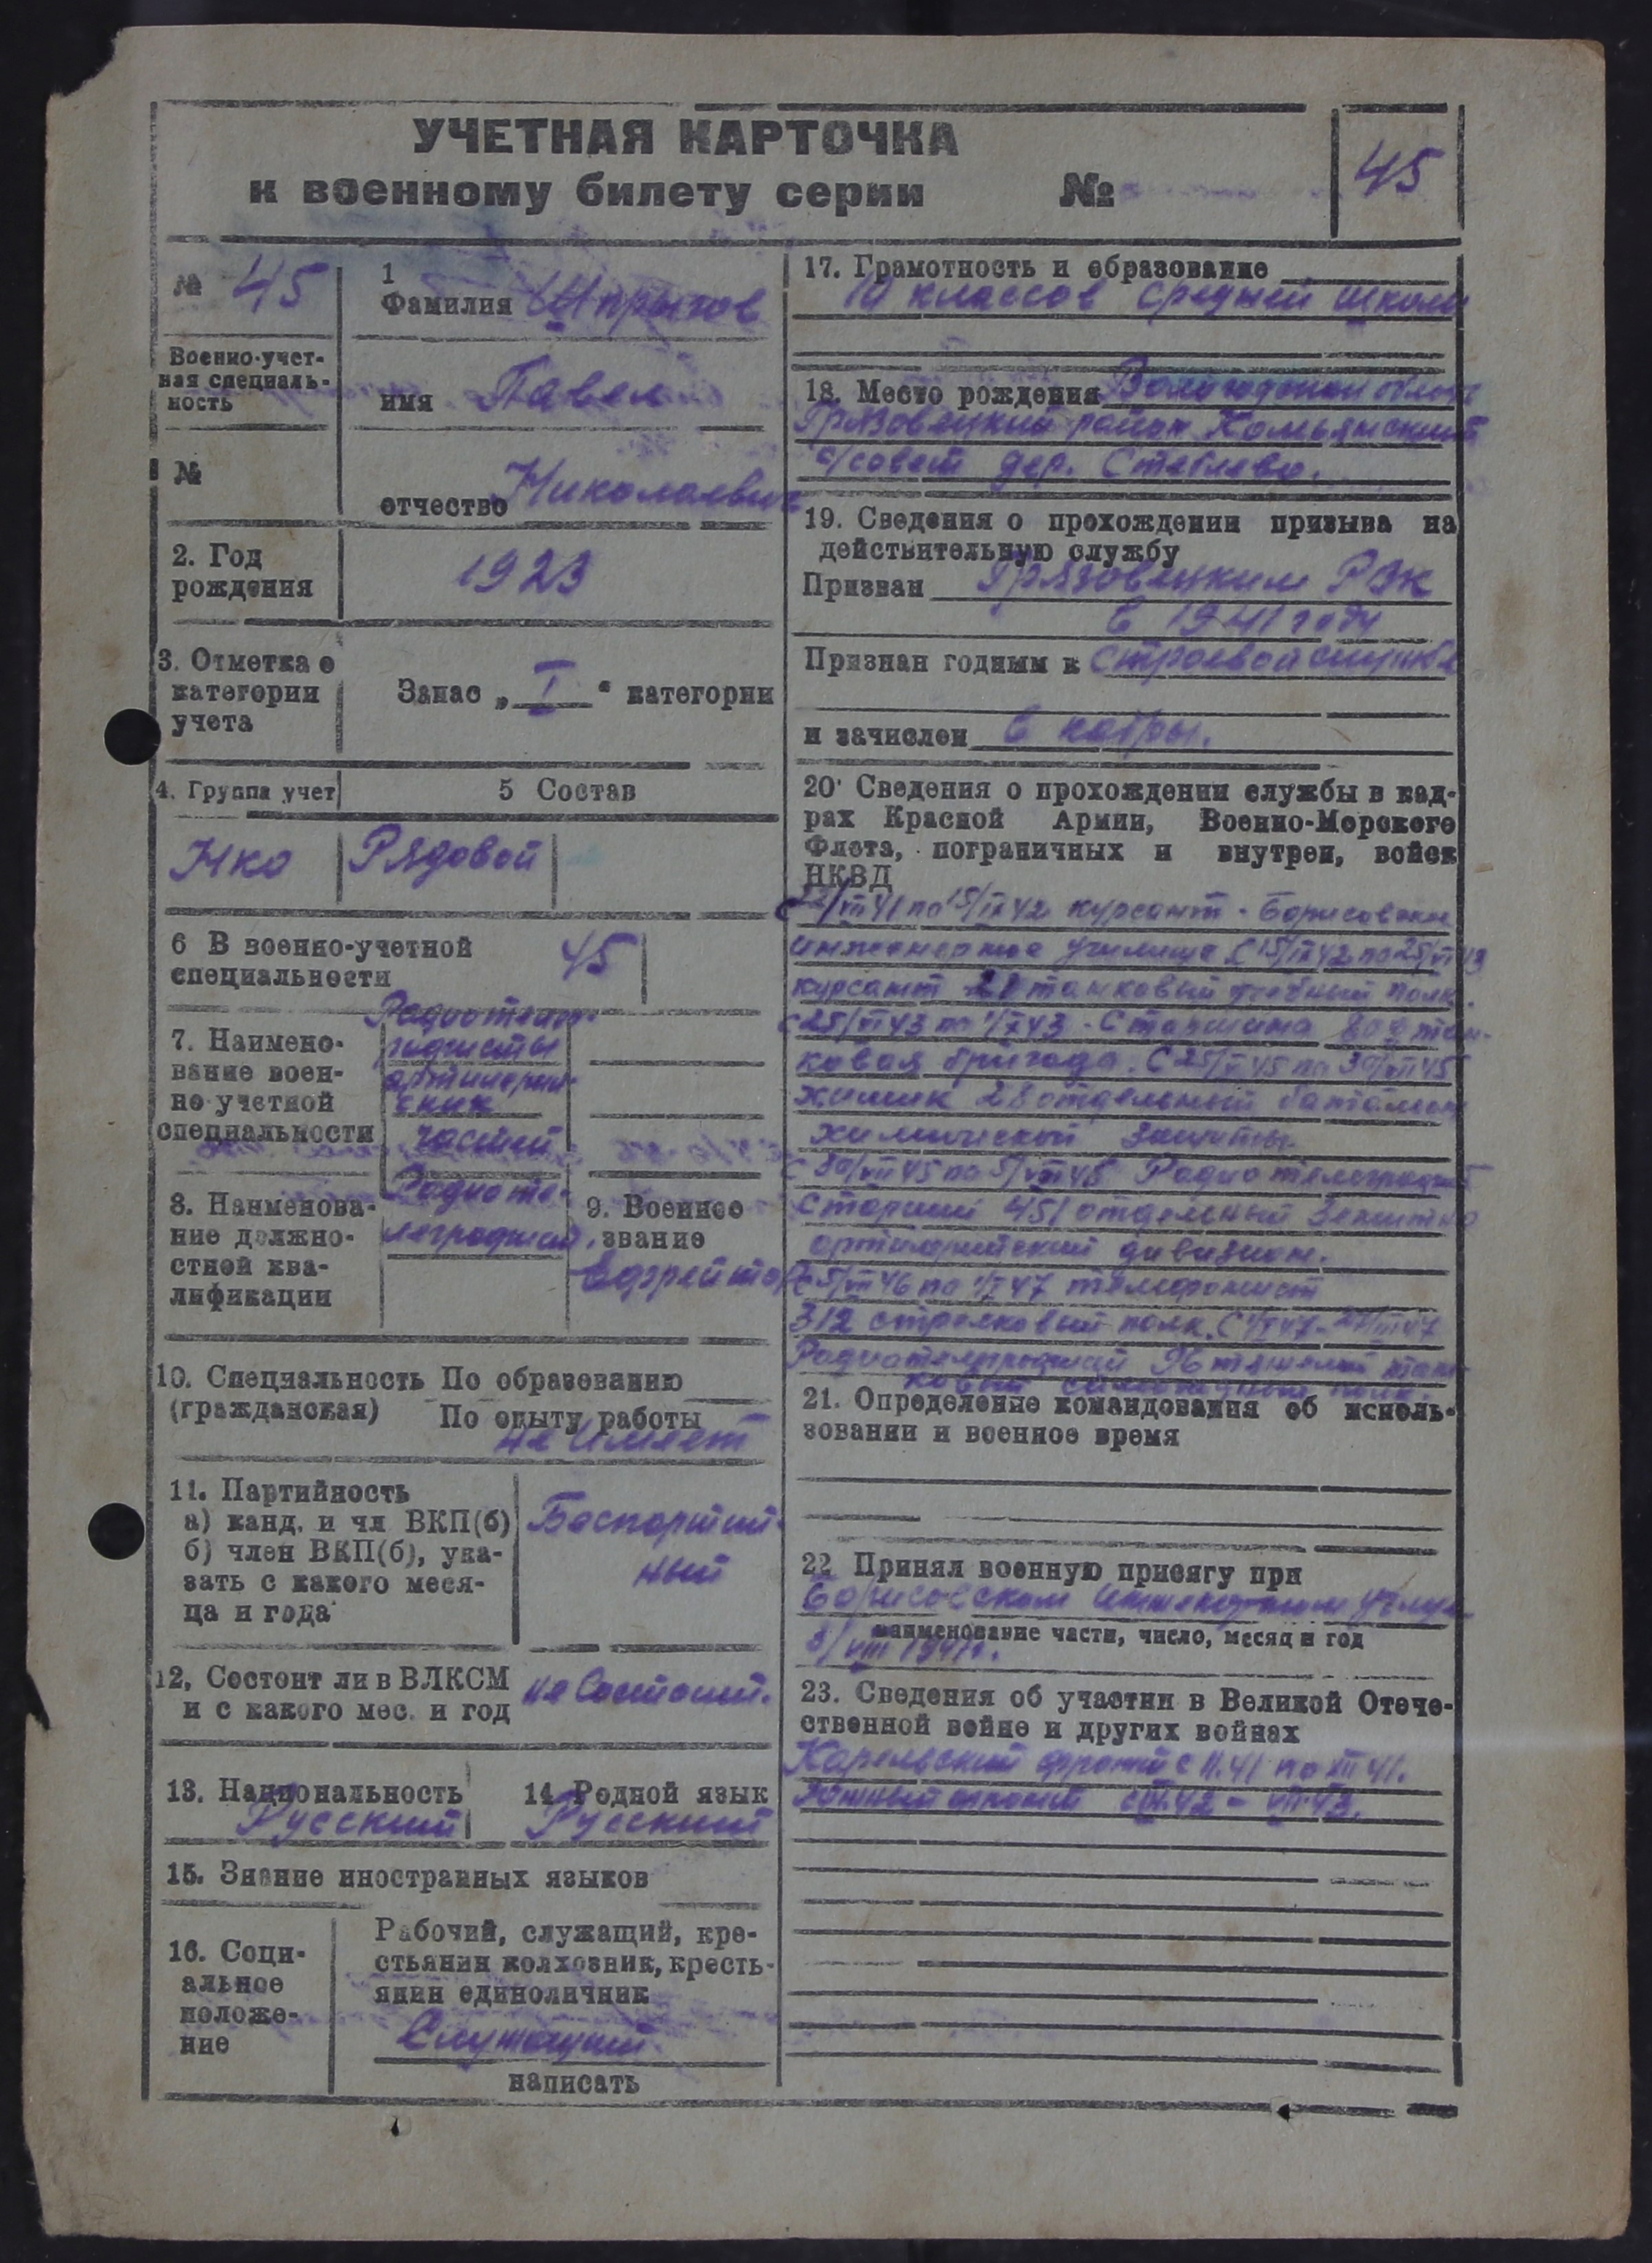 УЧЕТНАЯ КАРТОЧКА
к военному билету серии №
45
№ 45
Военно-учет-
ная специаль-
ность
№
1
Фамилия
имя Павел
отчество Николаевич
2. Год
рождения
1923
3. Отметка о
категории
учета
Запас „ I “ категории
4. Группа учет
5 Состав
Нко Рядовой
6 В военно-учетной
специальности
45
7. Наимено-
вание воен-
но-учетной
специальности
Радиотелег-
рафисты
артиллерий-
ских
частей
8. Наименова-
ние должно-
стной ква-
лификации
Радиоте-
леграфист.
9. Военное
звание
Ефрейтор
10. Специальность По образованию
(гражданская) По опыту работы
не имеет
11. Партийность
а) канд. и чл ВКП(б)
б) член ВКП(б), ука-
зать с какого меся-
ца и года
Беспартий-
ный
12, Состоит ли в ВЛКСМ
и с какого мес. и год
не состоит.
13. Национальность
Русский
14 Родной язык
Русский
15. Знание иностранных языков
16. Соци-
альное
положе-
ние
Рабочий, служащий, кре-
стьянин колхозник, кресть-
янин единоличник
Служащий
написать
17. Грамотность и образование
10 классов средней школы
18. Место рождения Вологодская область
Грязовецкий район Комьянский
с/совет дер. Стеблево.
19. Сведения о прохождении призыва на
действительную службу
Призван Грязовецким РВК
в 1941 году
Признан годным к строевой службе
и зачислен в кадры.
20· Сведения о прохождении службы в кад-
рах Красной Армии, Военно-Морского
Флота, пограничных и внутрен, войск
НКВД
курсант - Борисовское
инженерное училище С 15/IX 42 по 25/VI 43
курсант танковый учебный полк.
с 25/VI 43 по Старшина тан-
ковая бригада. С
химик 28 отдельный батальон
химической защиты.
Радиотелеграфист
старший 451 отдельный зенитно
артилерийский дивизион.
телефонист
312 стрелковый полк.
Радиотелеграфист 96 тяжелый тан-
ковый самоходный полк.
21. Определение командования об исполь-
зовании и военное время
22 Принял военную присягу при
Борисовском инженерном училище
наименование части, число, месяц и год
VIII 1941г.
23. Сведения об участии в Великой Отече-
ственной войне и других войнах
Карельский фронт с 11.41 по XII 41.
Южный фронт